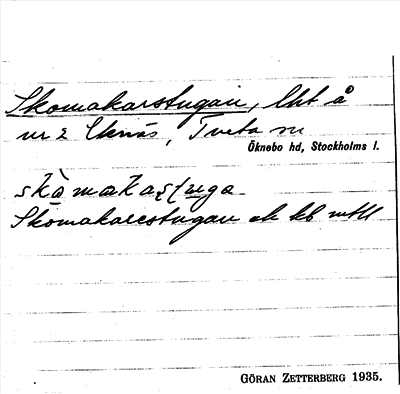 Skomakarstugan, lht å
nr 2 Eknäs, Tveta sn
Öknebo hd, Stockholms l.
skòmakaʂtuga
Skomakarestugan ek kb mtl
GÖRAN ZETTERBERG 1935.